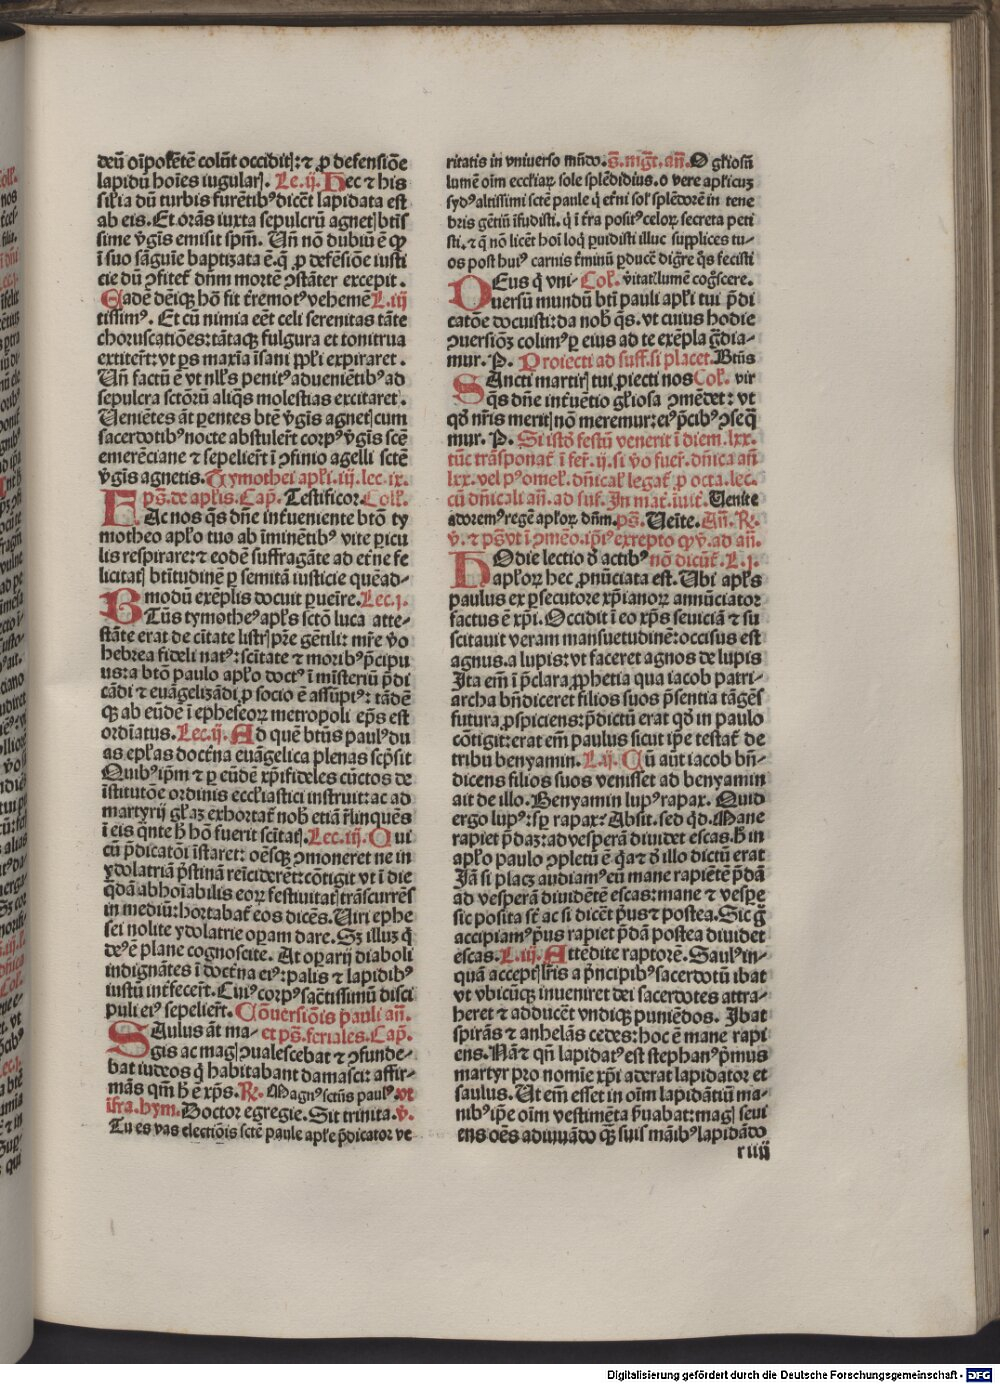 deū oīpotētē colūt occidit: ⁊ ꝓ defensiōe
lapidū hoīes iugular. Le. ij. Hec ⁊ his
silia dū turbis furētibꝰ dicēt lapidata est
ab eis. Et orās iuxta sepulcrū agnet btīs
sime vgīs emisit spm̄. Un̄ nō dubiū ē qꝫ
ī suo sāguīe baptizata ē. q̄ ꝓ defēsiōe iusti
cie dū ꝯfitet dn̄m mortē ꝯstāter excepit.
Eadē deīcꝫ hō fit tremotꝰ vehemē L. iij
tissimꝰ. Et cū nimia eēt celi serenitas tāte
choruscatiōes: tātaqꝫ fulgura et tonitrua
extitert: vt ps maxīa īsani ppli expiraret.
Un̄ factū ē vt nllꝰs penitꝰ aduenietibꝰ ad
sepulcra sctōrū aliqs molestias excitaret.
Ueniētes āt pentes btē vgīs agnet cum
sacerdotibꝰ nocte abstulert corpꝰ vgīs scē
emerēciane ⁊ sepeliert ī ꝯfinio agelli sctē
vgīs agnetis. Tymothei apli. iij. lec. ix.
ps. de aplis. Cap. Testificor. Coll.
FAc nos qs dn̄e interueniente btō ty
motheo aplo tuo ab īminētibꝰ vite picu
lis respirare: ⁊ eodē suffragāte ad etne fe
licitat btītudinē p semitā iusticie quēad-
modū exēplis docuit puenīre. Lec. j.
BTūs tymotheꝰ apls sctō luca atte-
stāte erat de cītate listr: pre gētili: mre vo
hebrea fideli natꝰ: scītate ⁊ moribꝰ pcipu
us: a btō paulo aplo doctꝰ ī mīsteriū pdi
cādi ⁊ euāgelizādi ꝓ socio ē assūpꝰ: tādē
qꝫ ab eūdē ī epheseoꝝ metropoli epūs est
ordīatus. Lec. ij. Ad quē btūs paulꝰ du
as eplas doctna euāgelica plenas scpsit
Quibꝰ ipm̄ ⁊ p eūdē xpifideles cūctos de
īstitutōe ordinis ecclīastici instruit: ac ad
martyrij glīaꝫ exhortat nob etiā rlinquēs
ī eis qnte h hō fuerit scītat. Lec. iij. Qui
cū pdicatōi īstaret: oēsqꝫ ꝯmoneret ne in
ydolatriā pstinā reicideret: cōtigit vt ī die
qdā abhoīabilis eoꝝ festiuitat trāscurrēs
in mediū: hortabat eos dicēs. Uiri ephe
sei nolite ydolatrie opam dare. Sꝫ illuꝫ q
deꝰ ē plane cognoscite. At oparij diaboli
indignātes ī doctna eiꝰ: palis ⁊ lapidibꝰ
iustū intfecert. Cuiꝰ corpꝰ sactissimū disci
puli eiꝰ sepeliert. Cōuersiōis pauli añ.
SAulus āt ma- et ps. feriales. Cap.
gis ac mag ꝯualescebat ⁊ ꝯfunde-
bat iudeos q habitabant damasci: affir-
mās qm̄ h ē xps. R. Magnꝰ sctūs paulꝰ. vt
ifra. hym. Doctor egregie. Sit trinita. v.
Tu es vas electiōis sctē paule aple pdicator ve
ritatis in vniuerso mūdo. S. mgt. añ. O gliosū
lumē oīm eccliaꝝ sole splēdidius. o vere aplicuꝫ
sydꝰ altissimi sctē paule q etni sol splēdorē in tene
bris gētiū ifudisti. q ī tra positꝰ celoꝝ secreta peti
sti. ⁊ q nō licēt hoī loq puidisti illuc supplices tu-
os post huiꝰ carnis tminū pducē digre qs fecisti
DEus q vni- Coll. vitat lumē cogscere.
uersū mundū btī pauli apli tui pdi
catōe docuisti: da nob qs. vt cuius hodie
ꝯuersionē colimꝰ p eius ad te exēpla gdia-
mur. P. Proiecti ad suff. si placet. Btūs
SAncti martir tui piecti nos Coll. vir
qs dn̄e intuētio gliosa ꝯmēdet: vt
qd nris merit nō meremur: eiꝰ pcibꝰ ꝯseq
mur. P. Si istd festū venerit ī diem. lxx.
tūc trāsponat ī fer. ij. si vo fuer. dn̄ica añ
lxx. vel pꝰ omel. dn̄ical legat p octa. lec.
cū dn̄icali añ. ad suf. In mat. iuit. Uenite
adoremꝰ regē aploꝝ dn̄m. ps. Ueīte. Añ. R.
v. ⁊ ps vt ī ꝯmēo. ipi excepto qv. ad añ.
HOdie lectio d actibꝰ nō dicūt. L. j.
aploꝝ hec pnūciata est. Ubi apls
paulus ex psecutore xpianoꝝ annūciator
factus ē xpi. Occidit ī eo xps seuiciā ⁊ su
scitauit veram mansuetudinē: occisus est
agnus. a lupis: vt faceret agnos de lupis
Ita em̄ ī pclara pphetia qua iacob patri-
archa bn̄diceret filios suos psentia tāgēs
futura pspiciens: pdictū erat qd in paulo
cōtigit: erat em̄ paulus sicut ipe testat de
tribu benyamin. L. ij. Cū aūt iacob bn̄-
dicens filios suos venisset ad benyamin
ait de illo. Benyamin lupꝰ rapax. Quid
ergo lupꝰ: sp rapax? Absit. sed qd. Mane
rapiet pdaꝫ: ad vesperā diuidet escas. h in
aplo paulo ꝯpletū ē qa ⁊ d illo dictū erat
Iā si placꝫ audiamꝰ eū mane rapiētē pdā
ad vesperā diuidētē escas: mane ⁊ vespe
sic posita st ac si dicēt pus ⁊ postea. Sic g
accipiamꝰ pus rapiet pdā postea diuidet
escas. L. iij. Attēdite raptorē. Saulꝰ in-
quā accept lris a pncipibꝰ sacerdotū ibat
vt vbicūqꝫ inueniret dei sacerdotes attra-
heret ⁊ adducēt vndiqꝫ puniēdos. Ibat
spirās ⁊ anhelās cedes: hoc ē mane rapi
ens. Nā ⁊ qn̄ lapidatꝰ est stephanꝰ pmus
martyr pro nomīe xpi aderat lapidator et
saulus. Ut em̄ esset in oīm lapidātiū ma-
nibꝰ ipe oīm vestimēta puabat: mag seui
ens oēs adiuuādo qꝫ suis māibꝰ lapidādo
r iiij
Digitalisierung gefördert durch die Deutsche Forschungsgemeinschaft - DFG